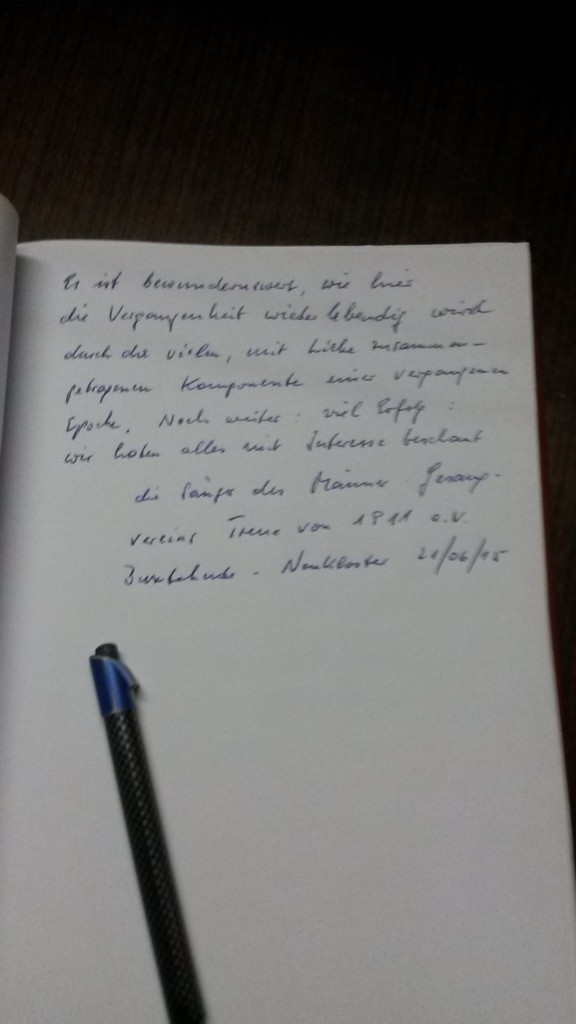 Es ist bewundernswert, wie hier
die Vergangenheit wieder lebendig wird
durch die vielen, mit Liebe zusammen-
getragenen Komponente einer vergangenen
Epoche. Noch weiter: viel Erfolg:
wir haben alles mit Interesse beschaut
die Sänger des Männer Gesang-
vereins Treue von 1911 e.V.
Buxtehude - Neukloster 21/06/15